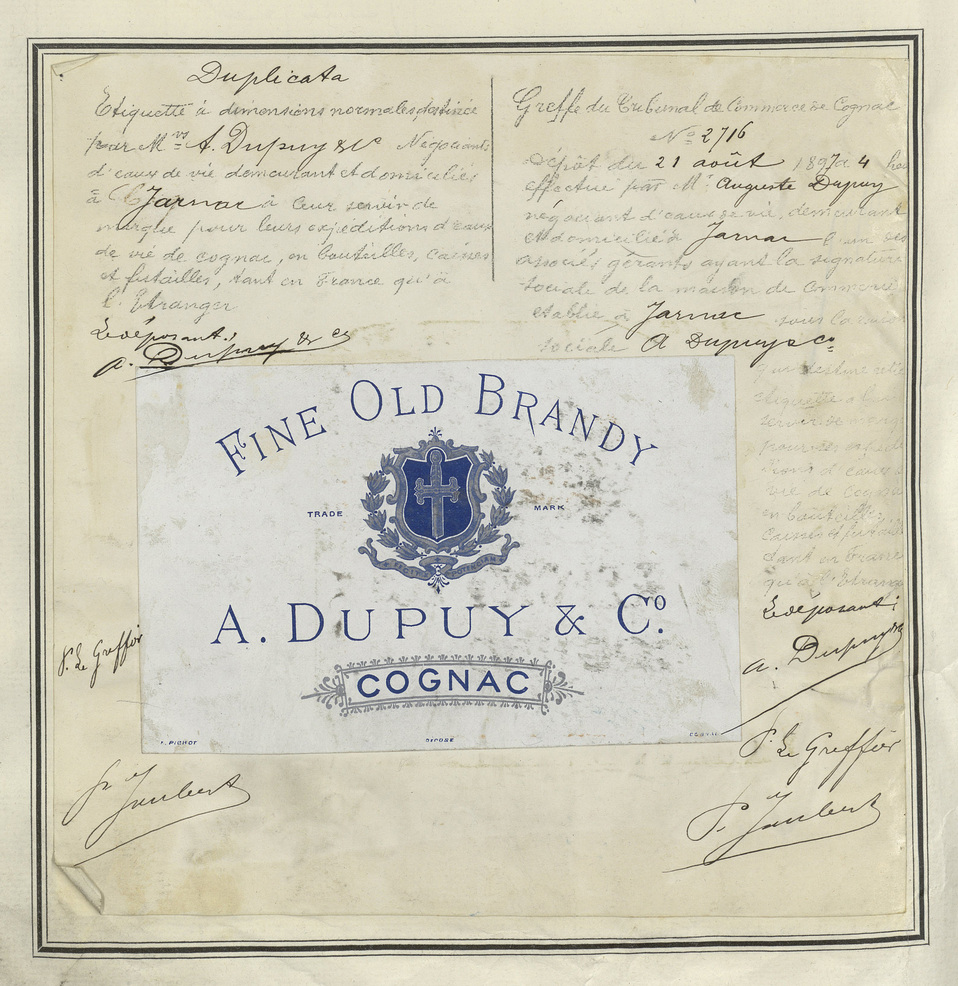 Duplicata
Etiquette à dimensions normales destinée
par Mrs A. Dupuy & Co Négociants
d'eaux de vie demeurant et domiciliés
à Jarnac à leur servir de
marque pour leurs expéditions d'eaux
de vie de cognac, en bouteilles, caisses
et futailles, tant en France qu'à
l'Etranger
Le déposant:
A. Dupuy & Co
Greffe du Tribunal de Commerce de Cognac
No 2716
Dépôt du 21 août 1897 à 4
effectué par Mr Auguste Dupuy
négociant d'eaux de vie, demeurant
et domicilié à Jarnac l'un des
associés gérants ayant la signature
sociale de la maison de Commerce
établie à Jarnac sous la
sociale A Dupuy & Co
qui destine
étiquette à
pour
d'eaux
vie de Cognac
en bouteilles,
caisses
tant en France
qu'à l'Etranger
Le déposant:
A. Dupuy & Co
FINE OLD BRANDY
TRADE MARK
A. DUPUY & Co.
COGNAC
PICHOT
DÉPOSÉ
P. Le Greffier
P. Jaubert
P. Le Greffier
P. Jaubert